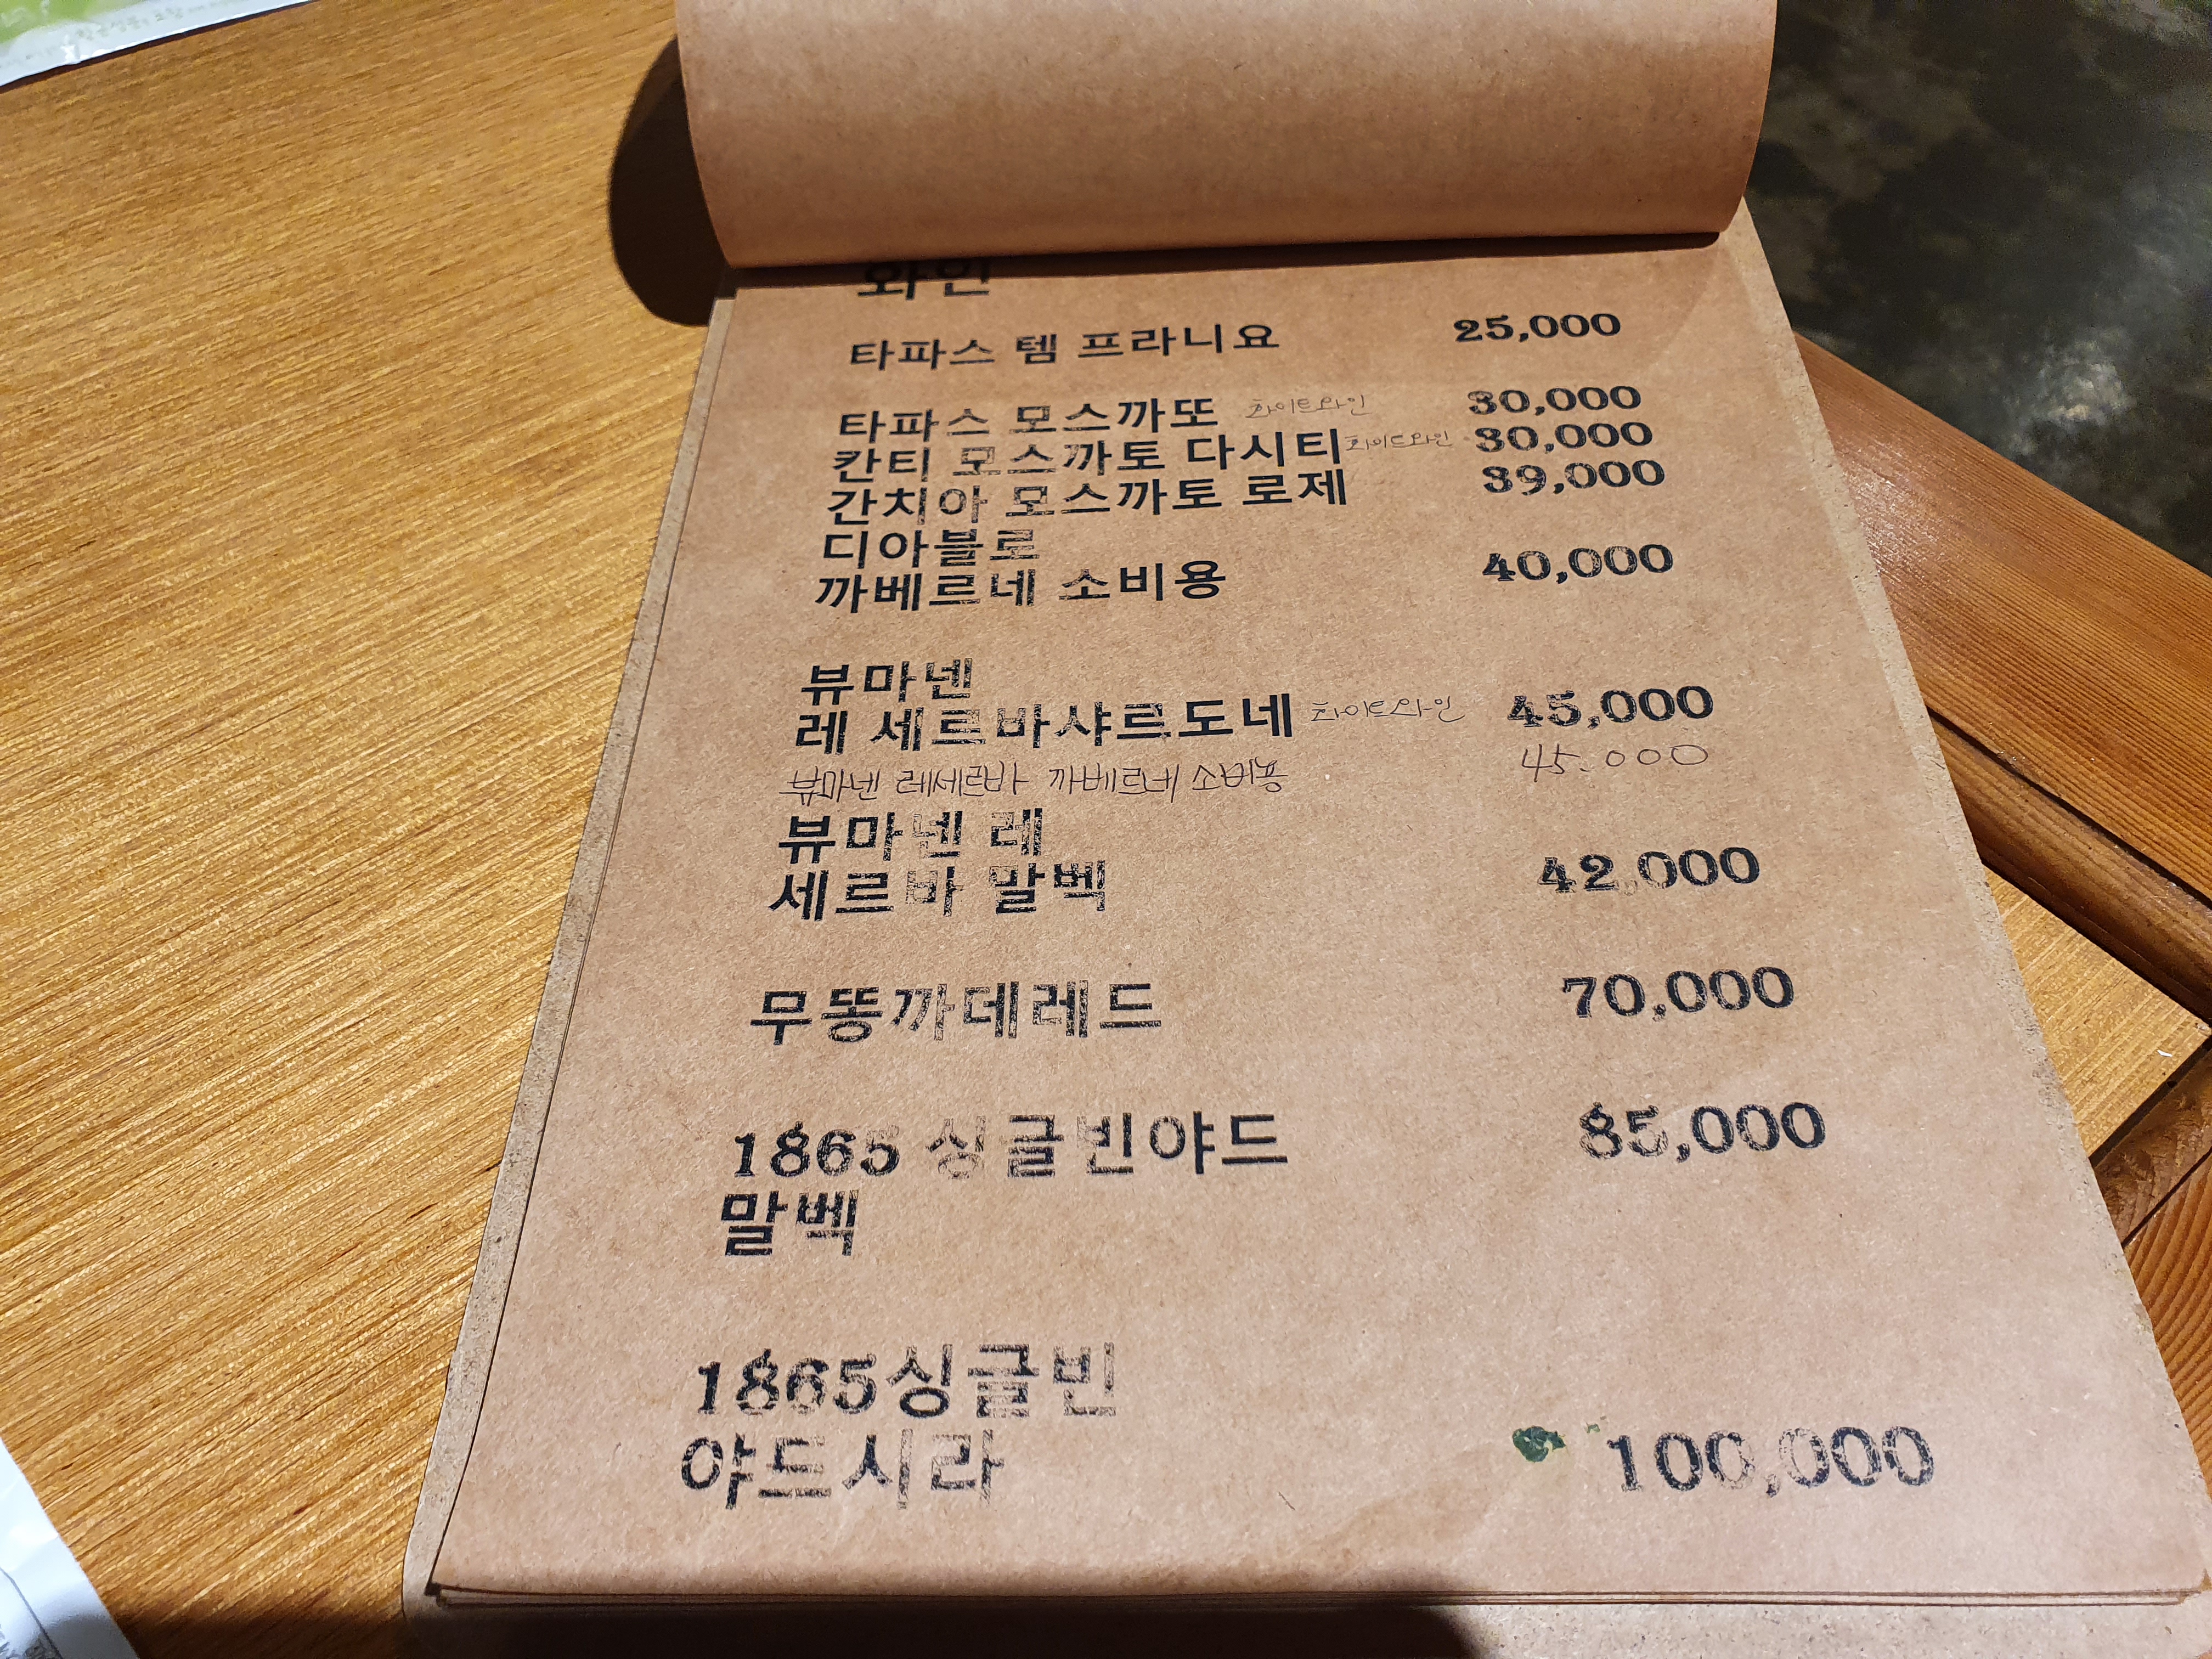 와인
타파스 템 프라니요 25,000
타파스 모스까또 화이트와인 30,000
칸티 모스까토 다시티 화이트와인 30,000
간치아 모스까토 로제 39,000
디아블로
까베르네 소비용 40,000
뷰마넨
레 세르바샤르도네 화이트와인 45,000
뷰마넨 레세르바 까베르네 소비용 45.000
뷰마넨 레
세르바 말벡 42,000
무똥까데레드 70,000
1865 싱글빈야드 85,000
말벡
1865싱글빈
야드시라 100,000